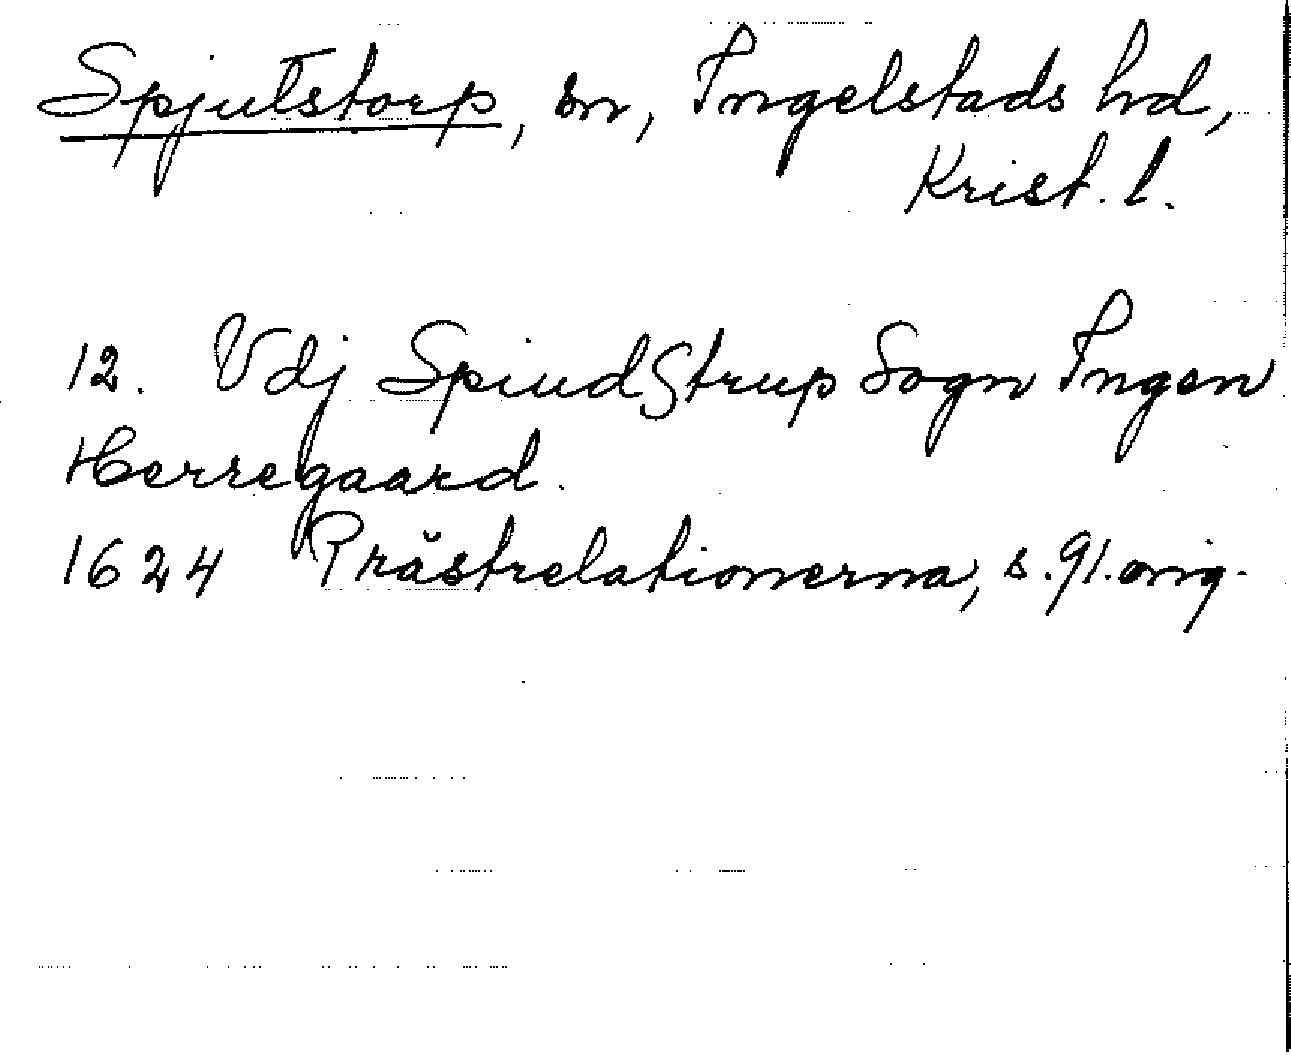 Spjutstorp, sn, Ingelstads hd,
Krist. l.
12. Vdj SpiudStrup Sogn Ingen
Herregaard.
1624 Prästrelationerna, s. 91. orig.